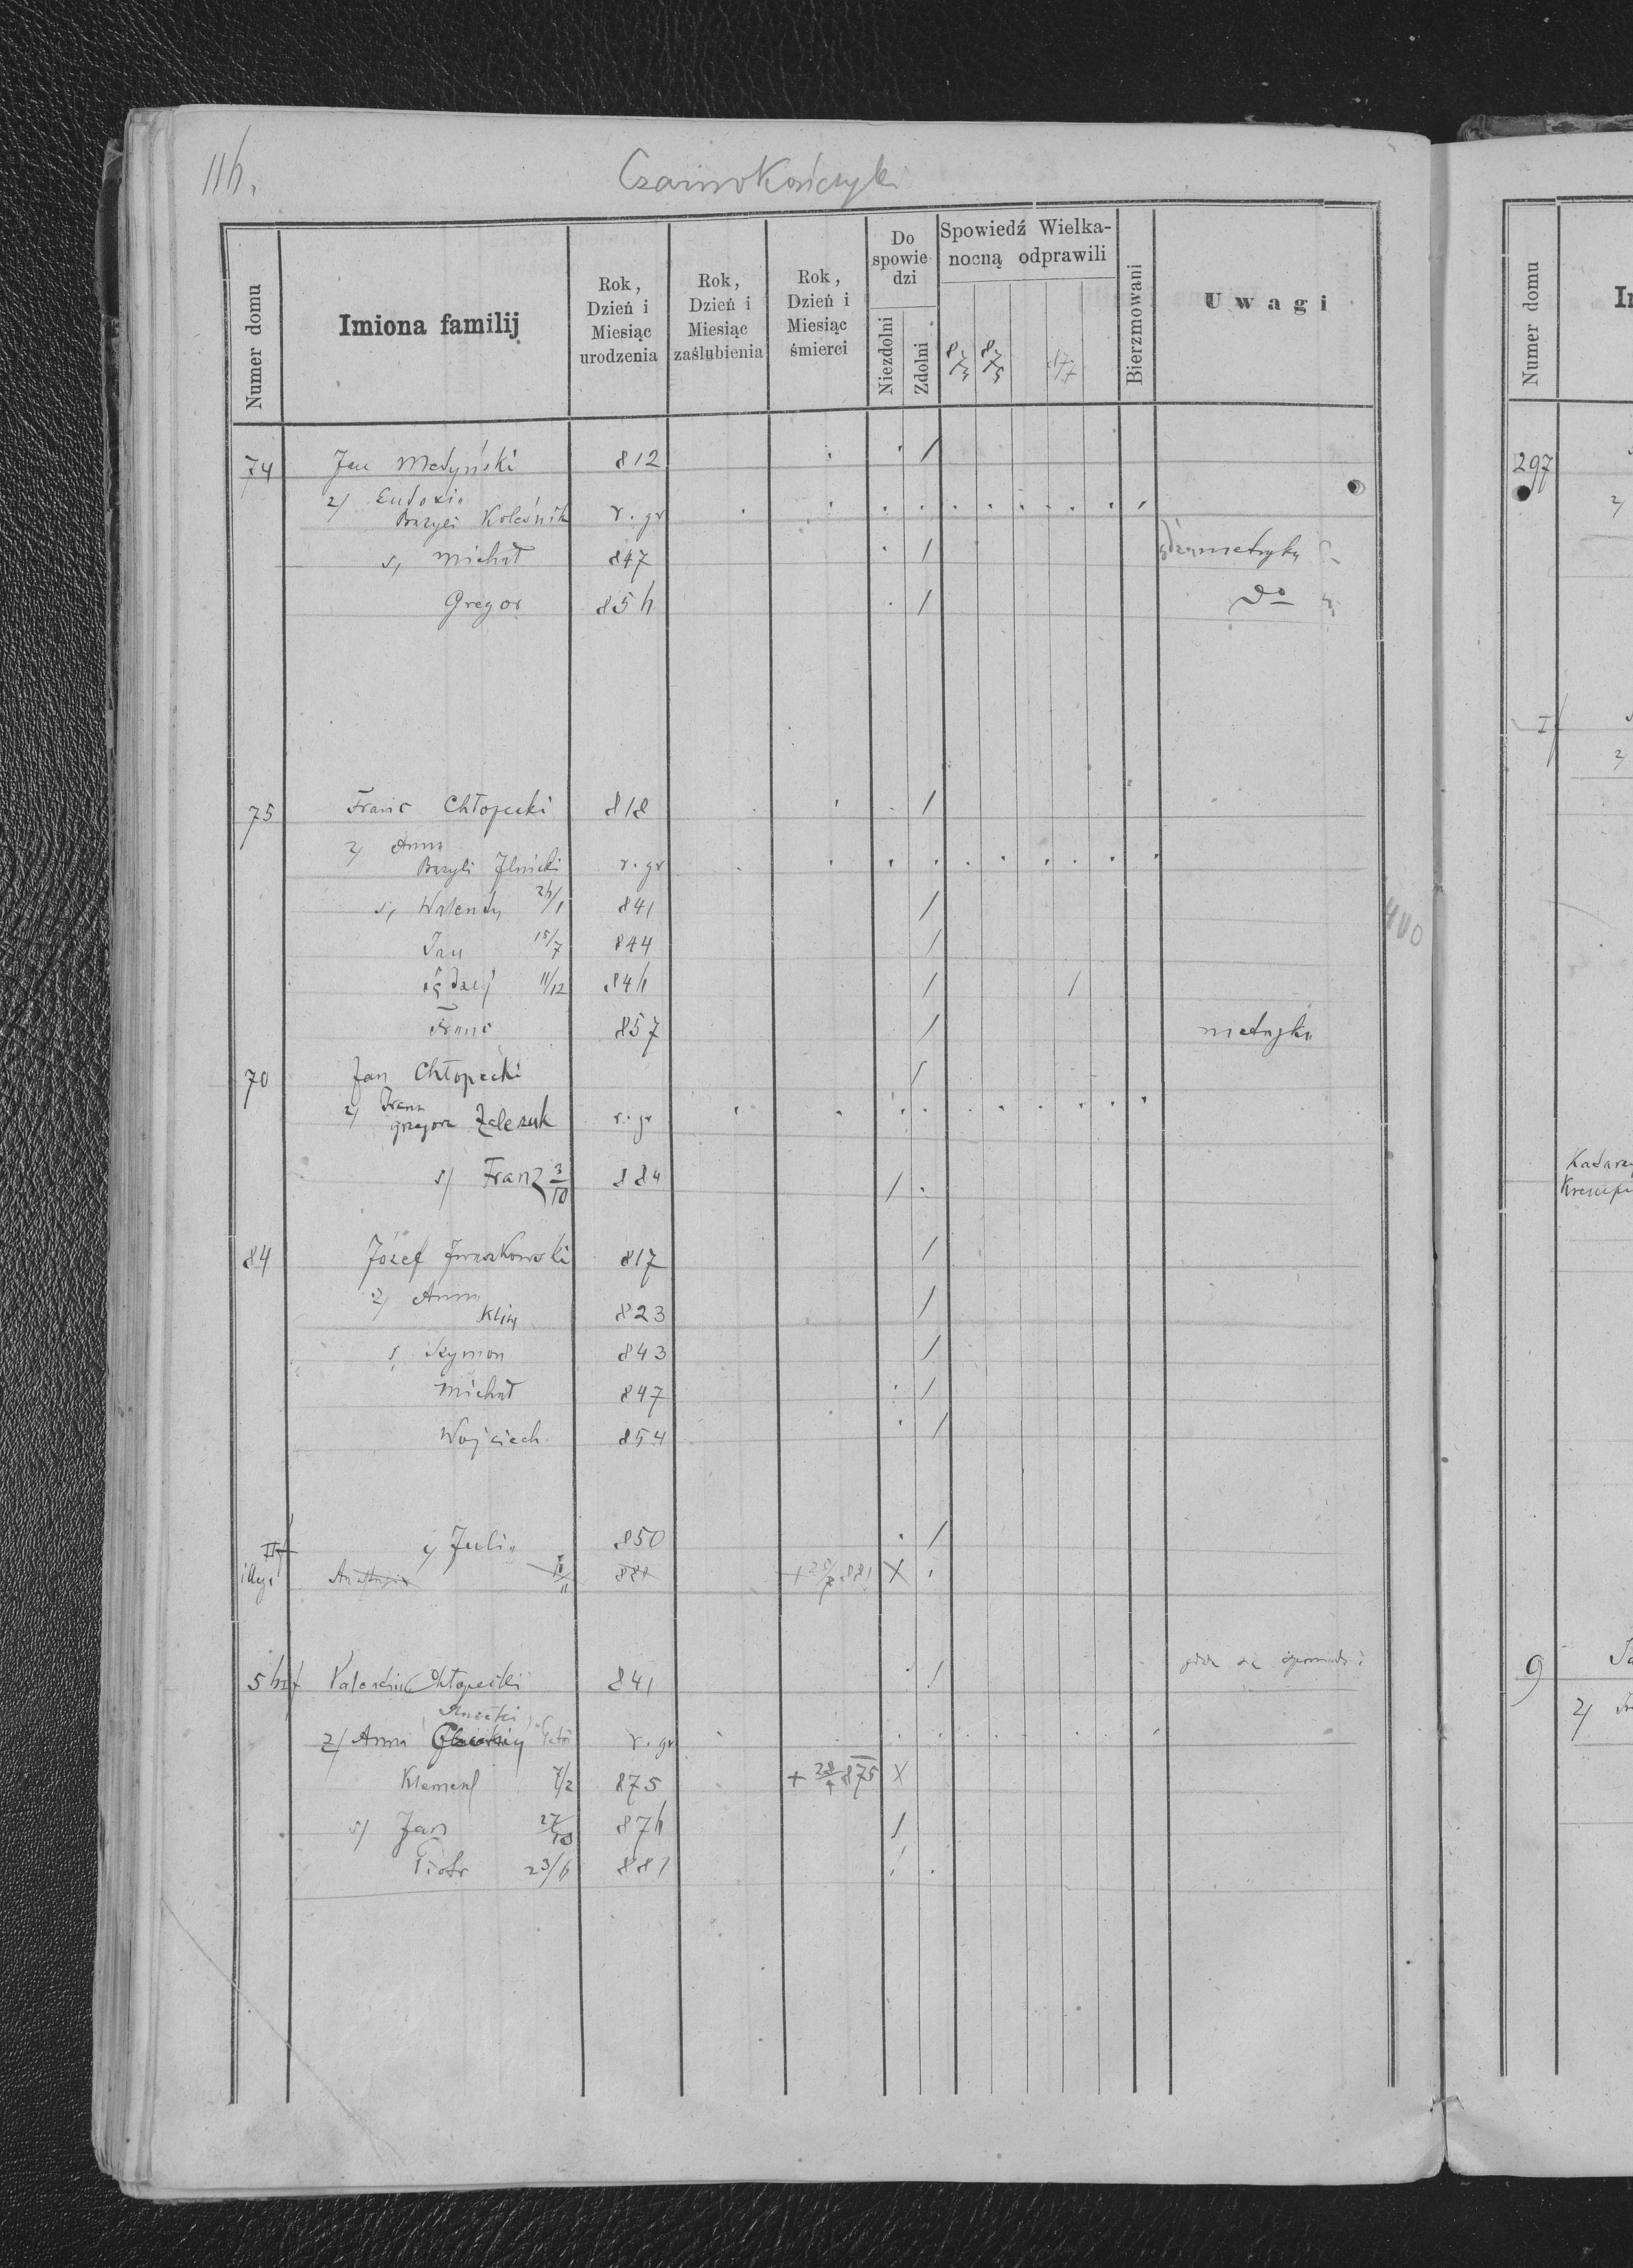 116.
Czarnokończyki
Numer domu
Imiona familij
Rok, Dzień i Miesiąc urodzenia
Rok, Dzień i Miesiąc zaślubienia
Rok, Dzień i Miesiąc śmierci
Do spowiedzi
Niezdolni
Zdolni
Spowiedź Wielkanocną odprawili
873
875
877
Bierzmowani
Uwagi
74 Jan Medyński 812
2/ Eudoxia
Bazyli Koleśnik r. gr
s, Michał 847 metryka
Gregor 856 do
75 Franc Chłopecki 818
2/ Anna
Bazyli Ilnicki r. gr
s, Walenty 26/1 841
Jan 15/7 844
11/12 846
Franc 857 metryka
70 Jan Chłopecki
2/
Grzegorz Zaleszuk r. gr
s/ Franz 3/10 884
84 Józef Iwaszkowski 817
2/ Anna
Klim 823
s, Szymon 843
Michał 847
Wojciech 854
II
c/ Julia 850
illeg. Anastazia 881
56 I Valentin Chłopecki 841
2/ Anna r. gr
Klemens 7/2 875 + 28/4 875
s/ Jan 27/10 876
Piotr 23/6 881
400
Numer domu
297
I
2/
9
2/